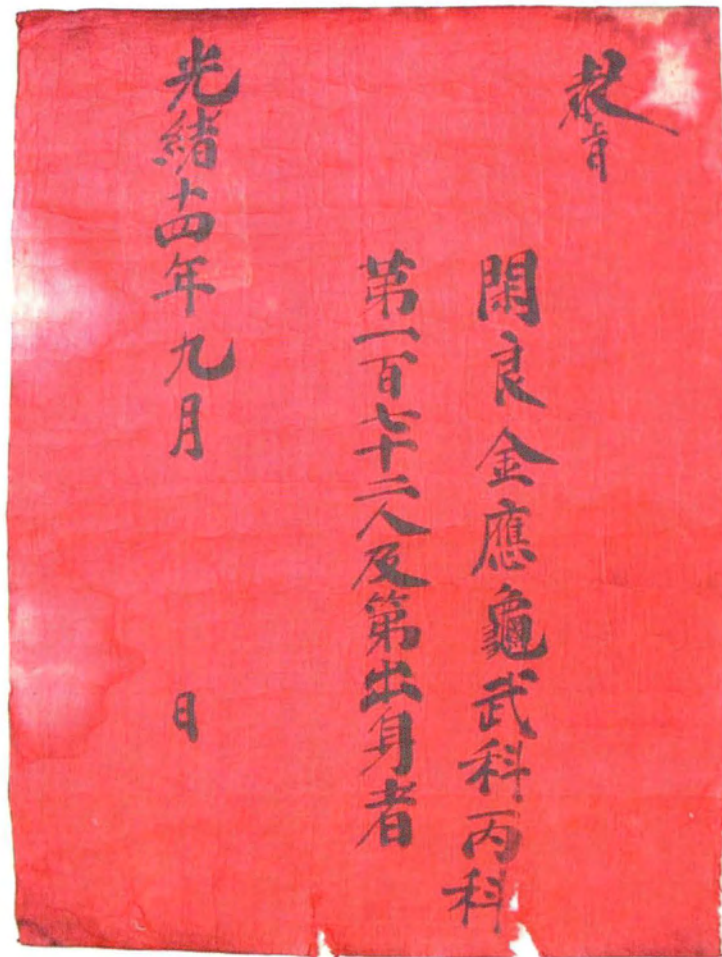 敎旨
閑良金應龜武科丙科
第一百七十二人及第出身者
光緖十四年九月 日